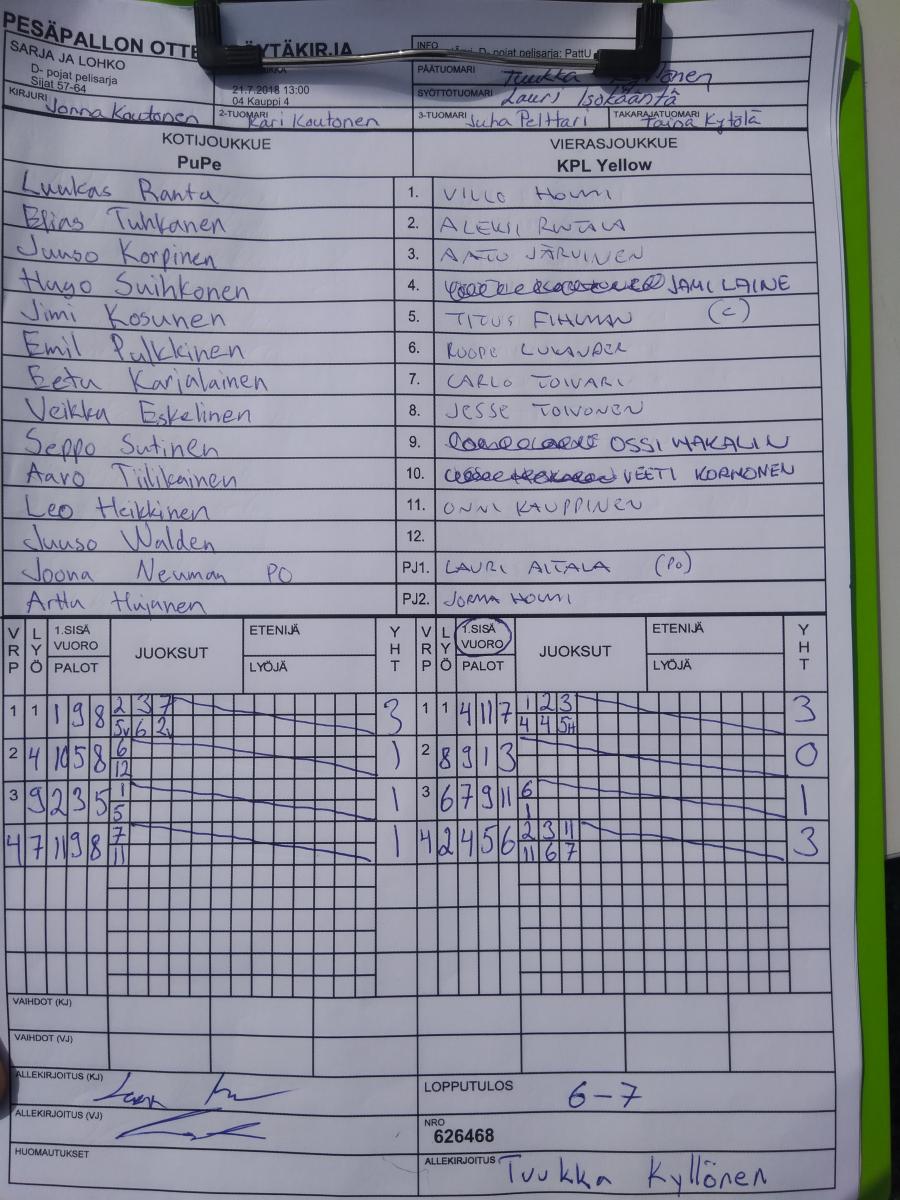 PESÄPALLON OTTE ÄYTÄKIRJA
SARJA JA LOHKO
D- pojat pelisarja
Sijat 57-64
21.7.2018 13:00
04 Kauppi 4
INFO
D- pojat pelisarja: PattU
PÄÄTUOMARI Tuukka Kyllönen
SYÖTTÖTUOMARI Lauri Isokääntä
KIRJURI Jonna Koutonen 2-TUOMARI Kari Koutonen 3-TUOMARI Juha Pelttari TAKARAJATUOMARI Taina Kytölä
KOTIJOUKKUE VIERASJOUKKUE
PuPe KPL Yellow
Luukas Ranta 1. VILLO HOUNI
Elias Tuhkanen 2. ALEKSI RINTALA
Juuso Korpinen 3. AATU JÄRVINEN
Hugo Suihkonen 4. JAMI LAINE
Jimi Kosunen 5. TITUS FIHLMAN (C)
Emil Pulkkinen 6. ROOPE LUKANDER
Eetu Karjalainen 7. CARLO TOIVARI
Veikka Eskelinen 8. JESSE TOIVONEN
Seppo Sutinen 9. OSSI WAKALIN
Aaro Tiilikainen 10. VEETI KORHONEN
Leo Heikkinen 11. ONNI KAUPPINEN
Juuso Walden 12.
Joona Neuman PO PJ1. LAURI AITALA (PO)
Arttu Hujanen PJ2. JORMA HOUNI
VRP LYÖ 1.SISÄ VUORO PALOT JUOKSUT ETENIJÄ LYÖJÄ YHT VRP LYÖ 1.SISÄ VUORO PALOT JUOKSUT ETENIJÄ LYÖJÄ YHT
1 1 1 9 8 2 3 7 3 1 1 4 11 7 1 2 3 3
5v 6 2v 4 4 5H
2 4 10 5 8 6 1 2 8 9 1 3 0
12
3 9 2 3 5 1 1 3 6 7 9 11 6 1
5 1
4 7 11 9 8 7 1 4 2 4 5 6 2 3 11 3
11 11 6 7
VAIHDOT (KJ)
VAIHDOT (VJ)
ALLEKIRJOITUS (KJ) LOPPUTULOS 6-7
ALLEKIRJOITUS (VJ) NRO
626468
HUOMAUTUKSET ALLEKIRJOITUS Tuukka Kyllönen